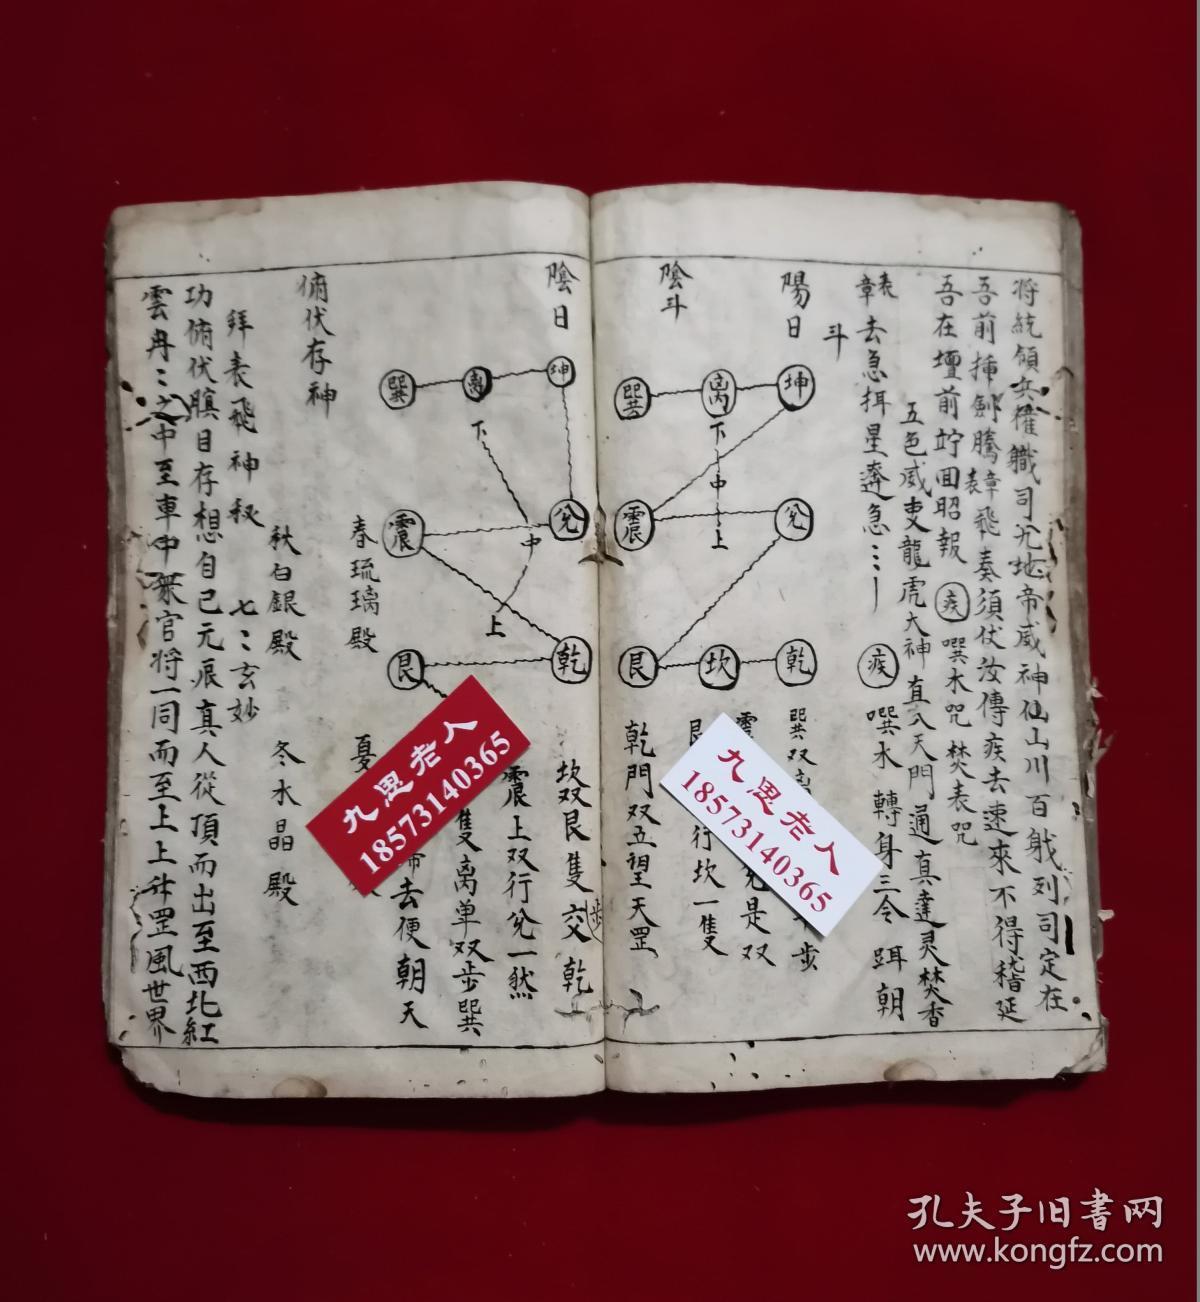 将統領兵權職司尤地帝威神仙山川百戝列司定在
吾前揷劍騰章表飛奏須伏汝傳疾去速來不得稽延
吾在壇前竚面昭報 疾 噀水咒 焚表咒
五色威吏龍虎大神直入天門通真達灵焚香
章表去急拜星奔急 疾 噀水 轉身三令 跽朝
斗
陽日
坤 離 巽
兌 震
乾 坎 艮
下 中 上
陰斗
巽双离 步
震 兌是双
艮 行坎一隻
乾門双五望天罡
陰日
坤 離 巽
兌 震
乾 艮
下 中 上
坎双艮隻交乾
步
震上双行兌一然
隻离单双步巽
去便朝天
俯伏存神
春琉璃殿
夏
秋白銀殿 冬水晶殿
拜表飛神秘 七七玄妙
功俯伏瞑目存想自己元辰真人從頂而出至西北紅
雲冉冉之中至車中衆官将一同而至上上升罡風世界
九思老人
18573140365
九思老人
18573140365
孔夫子旧书网
www.kongfz.com